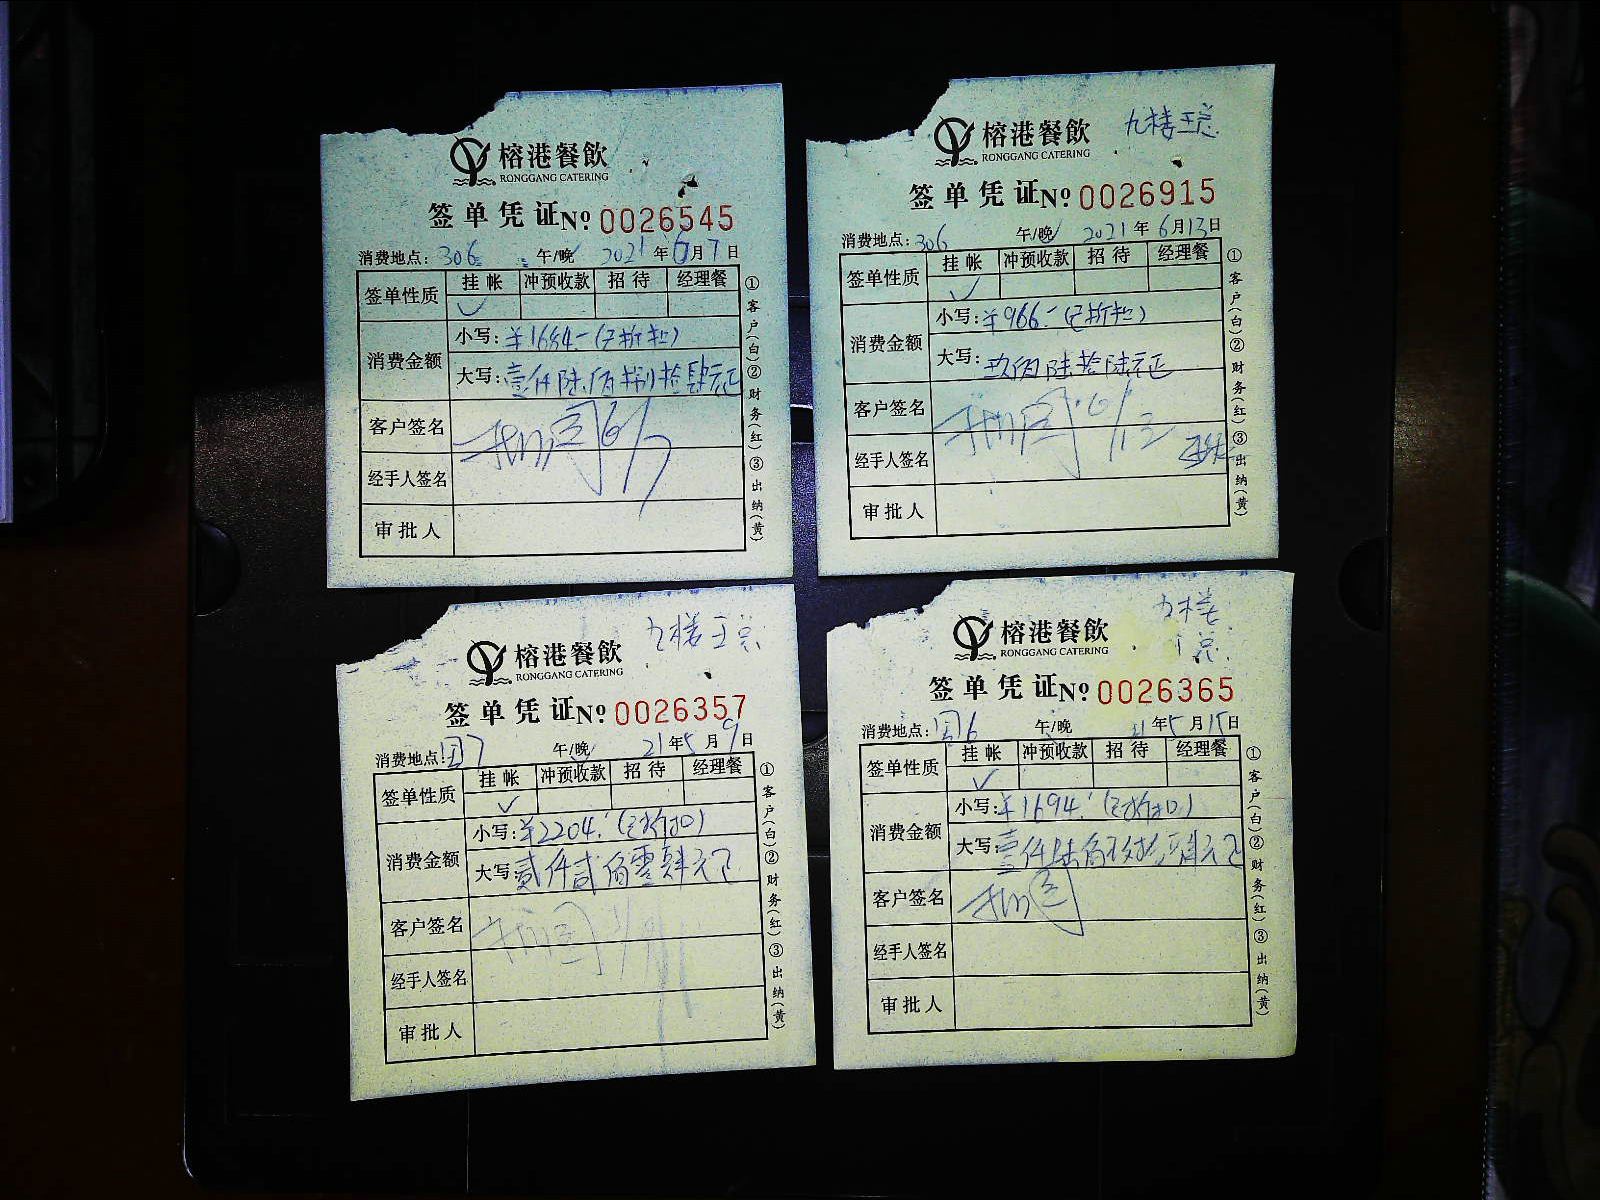 榕港餐飲
RONGGANG CATERING
签单凭证 № 0026545
消费地点：306 午/晚 2021年6月7日
签单性质 挂帐 冲预收款 招待 经理餐
✓
消费金额 小写：¥1684.-(已折扣)
大写：壹仟陆佰捌拾肆元正
客户签名 6/7
经手人签名
审批人
①客户(白)②财务(红)③出纳(黄)
九楼王总
榕港餐飲
RONGGANG CATERING
签单凭证 № 0026915
消费地点：306 午/晚 2021年6月13日
签单性质 挂帐 冲预收款 招待 经理餐
✓
消费金额 小写：¥966.-(已折扣)
大写：玖佰陆拾陆元正
客户签名 6/13
经手人签名
审批人
①客户(白)②财务(红)③出纳(黄)
九楼王总
榕港餐飲
RONGGANG CATERING
签单凭证 № 0026357
消费地点：国7 午/晚 21年5月9日
签单性质 挂帐 冲预收款 招待 经理餐
✓
消费金额 小写：¥2204.-(已折扣)
大写：贰仟贰佰零肆元正
客户签名
经手人签名
审批人
①客户(白)②财务(红)③出纳(黄)
九楼
王总
榕港餐飲
RONGGANG CATERING
签单凭证 № 0026365
消费地点：国6 午/晚 21年5月15日
签单性质 挂帐 冲预收款 招待 经理餐
✓
消费金额 小写：¥1694.-(已折扣)
大写：壹仟陆佰玖拾肆元正
客户签名
经手人签名
审批人
①客户(白)②财务(红)③出纳(黄)